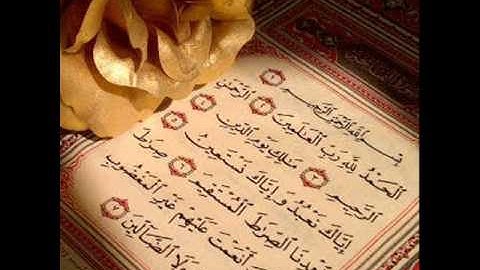 بِسْمِ اللَّهِ الرَّحْمَٰنِ الرَّحِيمِ ١
الْحَمْدُ لِلَّهِ رَبِّ الْعَالَمِينَ ٢ الرَّحْمَٰنِ
الرَّحِيمِ ٣ مَالِكِ يَوْمِ الدِّينِ ٤
إِيَّاكَ نَعْبُدُ وَإِيَّاكَ نَسْتَعِينُ ٥
اهْدِنَا الصِّرَاطَ الْمُسْتَقِيمَ ٦ صِرَاطَ
أَنْعَمْتَ عَلَيْهِمْ غَيْرِ الْمَغْضُوبِ
وَلَا الضَّالِّينَ ٧